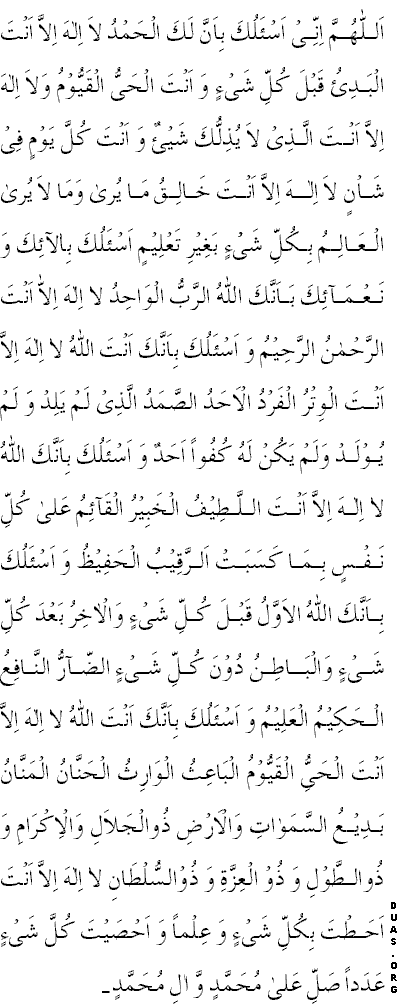 اَللّٰهُمَّ اِنِّىْ اَسْئَلُكَ بِاَنَّ لَكَ الْحَمْدُ لاَ اِلٰهَ اِلاَّ اَنْتَ
الْبَدِىُٔ قَبْلَ كُلِّ شَىْءٍ وَ اَنْتَ الْحَىُّ الْقَيُّوْمُ وَلاَ اِلٰهَ
اِلاَّ اَنْتَ الَّذِىْ لاَ يُذِلُّكَ شَيْئٌ وَ اَنْتَ كُلَّ يَوْمٍ فِىْ
شَاْنٍ لاَ اِلٰهَ اِلاَّ اَنْتَ خَالِقُ مَا يُرىٰ وَمَا لاَ يُرىٰ
الْعَالِمُ بِكُلِّ شَىْءٍ بَغِيْرِ تَعْلِيْمٍ اَسْئَلُكَ بِاٰلآئِكَ وَ
نَعْمَآئِكَ بَاَنَّكَ اللهُ الرَّبُّ الْوَاحِدُ لا اِلٰهَ اِلاّٰ اَنْتَ
الرَّحْمٰنُ الرَّحِيْمُ وَ اَسْئَلُكَ بِاَنَّكَ اَنْتَ اللهُ لا اِلٰهَ اِلاَّ
اَنْتَ الْوِتْرُ الْفَرْدُ الْاَحَدُ الصَّمَدُ الَّذِىْ لَمْ يَلِدْ وَ لَمْ
يُوْلَدْ وَلَمْ يَكُنْ لَهُ كُفُواً اَحَدٌ وَ اَسْئَلُكَ بِاَنَّكَ اللهُ
لا اِلٰهَ اِلاَّ اَنْتَ اللَّطِيْفُ الْخَبِيْرُ الْقَآئِمُ عَلىٰ كُلِّ
نَفْسٍ بِمَا كَسَبَتْ اَلرَّقِيْبُ الْحَفِيْظُ وَ اَسْئَلُكَ
بِاَنَّكَ اللهُ الاَوَّلُ قَبْلَ كُلِّ شَىْءٍ وَالْاخِرُ بَعْدَ كُلِّ
شَىْءٍ وَالْبَاطِنُ دُوْنَ كُلِّ شَىْءٍ الضَّآرُّ النَّافِعُ
الْحَكِيْمُ الْعَلِيْمُ وَ اَسْئَلُكَ بِاَنَّكَ اَنْتَ اللهُ لا اِلٰهَ اِلاَّ
اَنْتَ الْحَىُّ الْقَيُّوْمُ الْبَاعِثُ الْوَارِثُ الْحَنَّانُ الْمَنَّانُ
بَدِيْعُ السَّمَوَاتِ وَالْاَرْضِ ذُوالْجَلاَلِ وَالْاِكْرَامِ وَ
ذُوالطَّوْلِ وَ ذُوْ الْعِزَّةِ وَ ذُوْالسُّلْطَانِ لا اِلٰهَ اِلاَّ اَنْتَ
اَحَطْتَ بِكُلِّ شَىْءٍ وَ عِلْماً وَ اَحْصَيْتَ كُلَّ شَىْءٍ
عَدَداً صَلِّ عَلىٰ مُحَمَّدٍ وَّ اٰلِ مُحَمَّدٍ ـ
DUAS.ORG